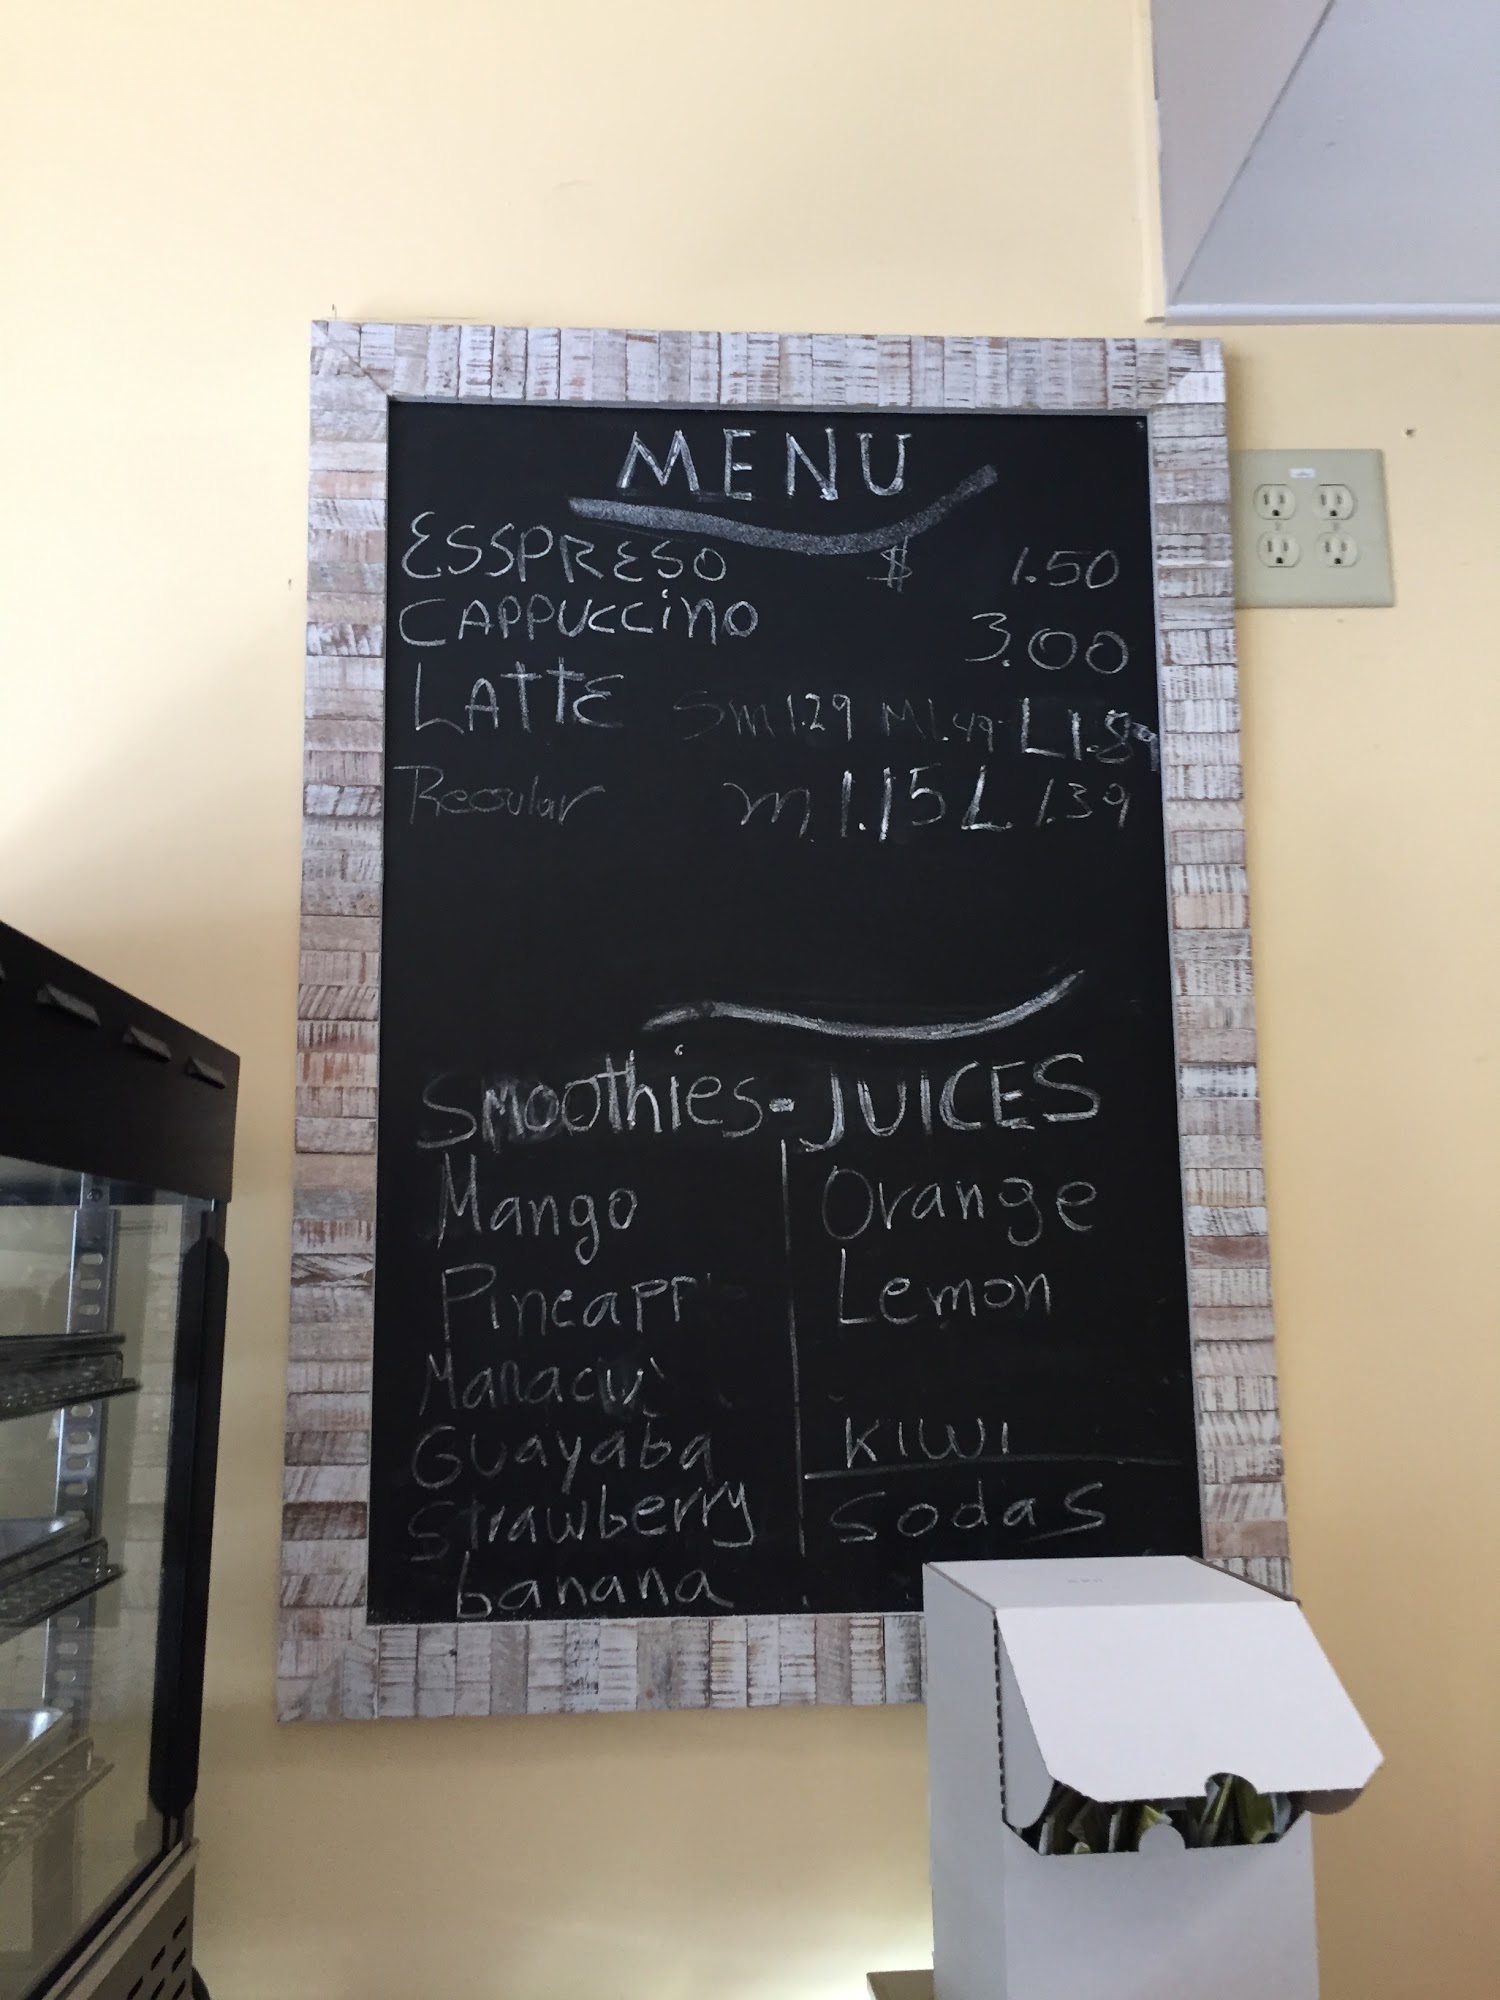 MENU
ESSPRESO $ 1.50
CAPPUCCINO 3.00
LATTE Sm 1.29 M 1.49 L 1.89
Regular M 1.15 L 1.39
Smoothies - JUICES
Mango Orange
Pineapp Lemon
Maracuy
Guayaba KIWI
Strawberry Sodas
banana